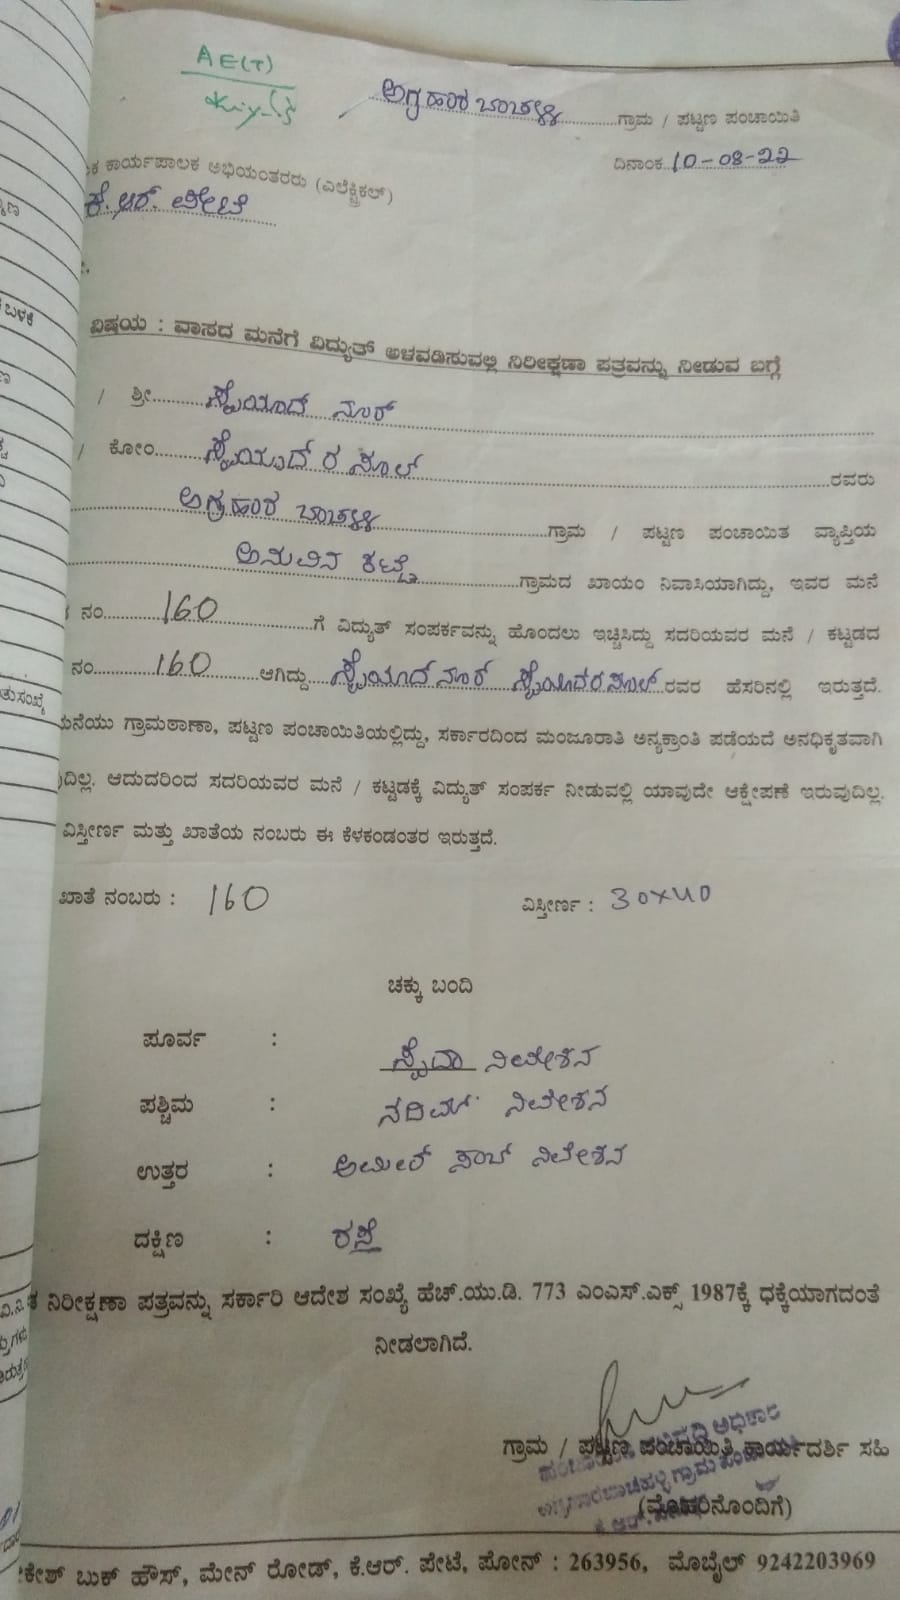 AE(T)
ಅಗ್ರಹಾರ ಬಾಚಹಳ್ಳಿ ಗ್ರಾಮ / ಪಟ್ಟಣ ಪಂಚಾಯಿತಿ
ದಿನಾಂಕ 10-08-22
ಕ ಕಾರ್ಯಪಾಲಕ ಅಭಿಯಂತರರು (ಎಲೆಕ್ಟ್ರಿಕಲ್)
ಕೆ.ಆರ್. ಪೇಟೆ
ವಿಷಯ : ವಾಸದ ಮನೆಗೆ ವಿದ್ಯುತ್ ಅಳವಡಿಸುವಲ್ಲಿ ನಿರೀಕ್ಷಣಾ ಪತ್ರವನ್ನು ನೀಡುವ ಬಗ್ಗೆ
/ ಶ್ರೀ ಸೈಯಾದ್ ನೂರ್
/ ಕೋಂ ಸೈಯ್ಯದ್ ರಸೂಲ್ ರವರು
ಅಗ್ರಹಾರ ಬಾಚಹಳ್ಳಿ ಗ್ರಾಮ / ಪಟ್ಟಣ ಪಂಚಾಯಿತ ವ್ಯಾಪ್ತಿಯ
ಅನುವಿನ ಕಟ್ಟೆ ಗ್ರಾಮದ ಖಾಯಂ ನಿವಾಸಿಯಾಗಿದ್ದು, ಇವರ ಮನೆ
ನಂ 160 ಗೆ ವಿದ್ಯುತ್ ಸಂಪರ್ಕವನ್ನು ಹೊಂದಲು ಇಚ್ಚಿಸಿದ್ದು ಸದರಿಯವರ ಮನೆ / ಕಟ್ಟಡದ
ನಂ 160 ಆಗಿದ್ದು ಸೈಯಾದ್ ನೂರ್ ರವರ ಹೆಸರಿನಲ್ಲಿ ಇರುತ್ತದೆ.
ಮನೆಯು ಗ್ರಾಮಠಾಣಾ, ಪಟ್ಟಣ ಪಂಚಾಯಿತಿಯಲ್ಲಿದ್ದು, ಸರ್ಕಾರದಿಂದ ಮಂಜೂರಾತಿ ಅನ್ಯಕ್ರಾಂತಿ ಪಡೆಯದೆ ಅನಧಿಕೃತವಾಗಿ
ವುದಿಲ್ಲ. ಆದುದರಿಂದ ಸದರಿಯವರ ಮನೆ / ಕಟ್ಟಡಕ್ಕೆ ವಿದ್ಯುತ್ ಸಂಪರ್ಕ ನೀಡುವಲ್ಲಿ ಯಾವುದೇ ಆಕ್ಷೇಪಣೆ ಇರುವುದಿಲ್ಲ.
ವಿಸ್ತೀರ್ಣ ಮತ್ತು ಖಾತೆಯ ನಂಬರು ಈ ಕೆಳಕಂಡಂತರ ಇರುತ್ತದೆ.
ಖಾತೆ ನಂಬರು : 160 ವಿಸ್ತೀರ್ಣ : 30x40
ಚಕ್ಕು ಬಂದಿ
ಪೂರ್ವ : ಸೈದಾ ನಿವೇಶನ
ಪಶ್ಚಿಮ : ನದಿಮ್ ನಿವೇಶನ
ಉತ್ತರ : ಅಮೀರ್ ಸಾಬ್ ನಿವೇಶನ
ದಕ್ಷಿಣ : ರಸ್ತೆ
ನಿರೀಕ್ಷಣಾ ಪತ್ರವನ್ನು ಸರ್ಕಾರಿ ಆದೇಶ ಸಂಖ್ಯೆ ಹೆಚ್.ಯು.ಡಿ. 773 ಎಂಎಸ್.ಎಕ್ಸ್ 1987ಕ್ಕೆ ಧಕ್ಕೆಯಾಗದಂತೆ
ನೀಡಲಾಗಿದೆ.
ಗ್ರಾಮ / ಪಟ್ಟಣ ಪಂಚಾಯಿತಿ ಕಾರ್ಯದರ್ಶಿ ಸಹಿ
(ಮೊಹರಿನೊಂದಿಗೆ)
ಕೇಶ್ ಬುಕ್ ಹೌಸ್, ಮೇನ್ ರೋಡ್, ಕೆ.ಆರ್. ಪೇಟೆ, ಪೋನ್ : 263956, ಮೊಬೈಲ್ 9242203969